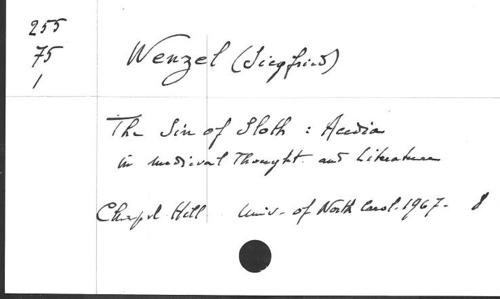 255
75
1
Wenzel (Siegfried)
The Sin of Sloth : Acedia
in medieval Thought and Literature
Chapel Hill Univ. of North Carol. 1967. 8